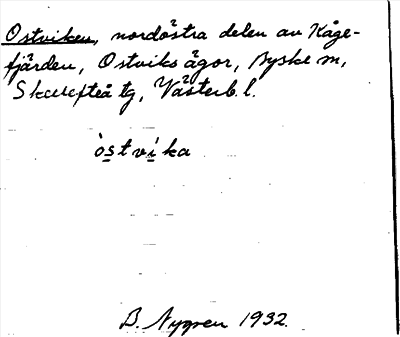 Ostviken, nordöstra delen av Kåge-
fjärden, Ostviks ägor, Byske sn,
Skellefteå tg, Västerb. l.
òstvíka
B. Nygren 1932.